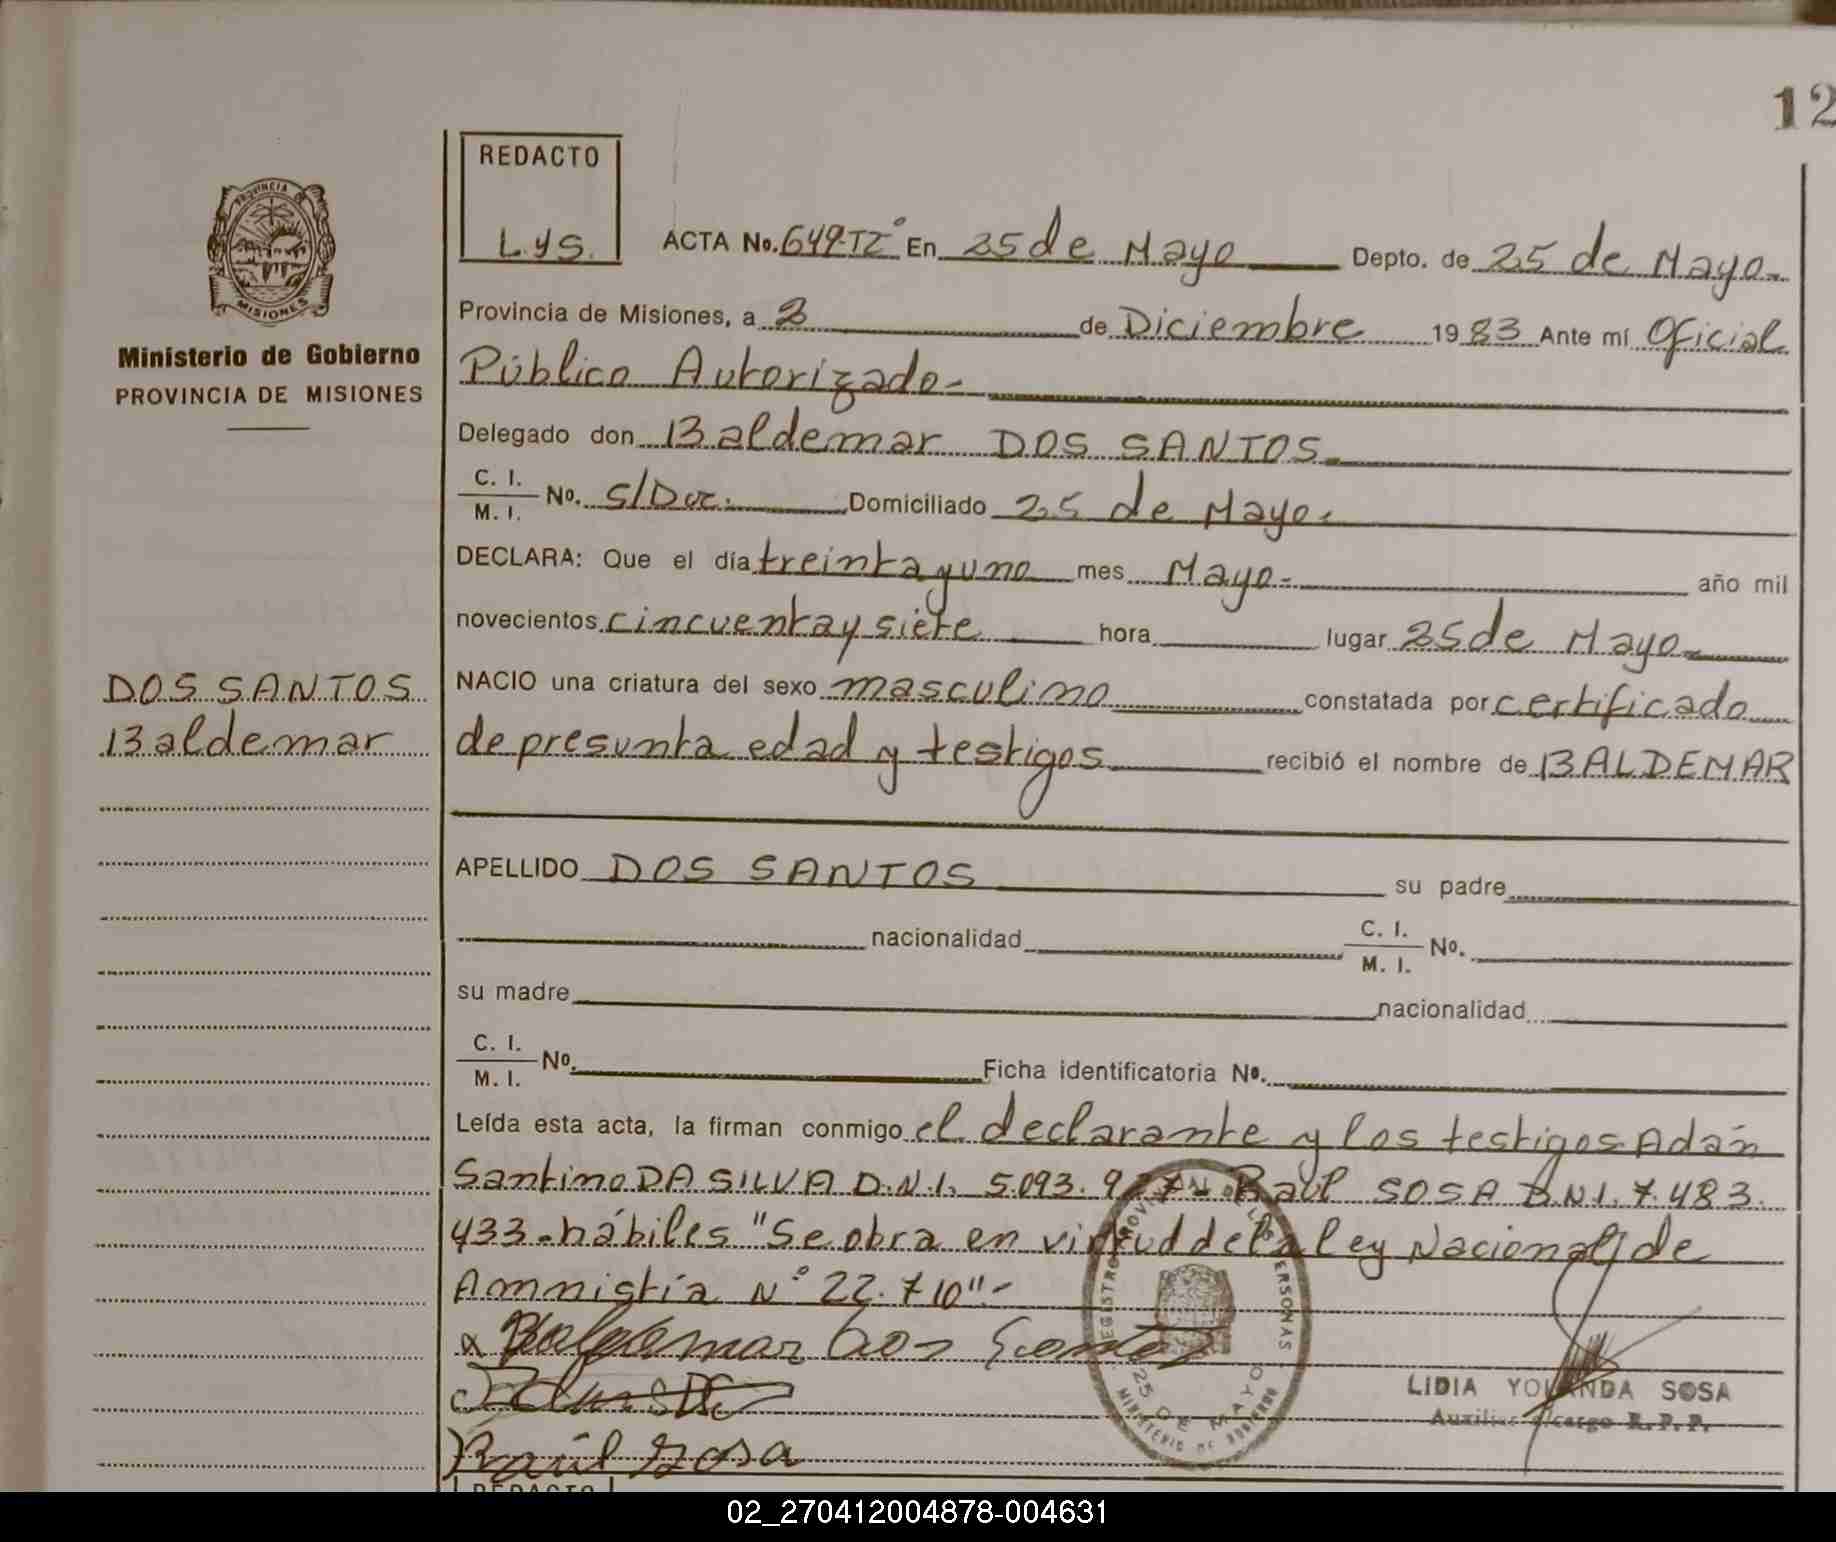 12
REDACTO
L.y.S.
PROVINCIA DE
MISIONES
Ministerio de Gobierno
PROVINCIA DE MISIONES
DOS SANTOS
Baldemar
ACTA No. 649 TIº En 25 de Mayo Depto. de 25 de Mayo
Provincia de Misiones, a 2 de Diciembre 1983 Ante mí Oficial
Público Autorizado.-
Delegado don Baldemar DOS SANTOS.
C. I. / M. I. No. S/Doc. Domiciliado 25 de Mayo.
DECLARA: Que el día treinta y uno mes Mayo.- año mil
novecientos cincuenta y siete hora lugar 25 de Mayo
NACIO una criatura del sexo masculino constatada por certificado
de presunta edad y testigos recibió el nombre de BALDEMAR
APELLIDO DOS SANTOS su padre
nacionalidad C. I. / M. I. No.
su madre nacionalidad
C. I. / M. I. Nº. Ficha identificatoria Nº.
Leída esta acta, la firman conmigo el declarante y los testigos Adán
Santino DA SILVA D.N.I. 5.093.927- Raúl SOSA D.N.I. 7.483.
433.- hábiles "Se obra en virtud de la ley Nacional de
Amnistía Nº 22.710".-
Baldemar dos Santos
Raúl Sosa
REGISTRO PROVINCIAL DE LAS PERSONAS
25 DE MAYO
MINISTERIO DE GOBIERNO
LIDIA YOLANDA SOSA
Auxiliar a/cargo R.P.P.
REDACTO
02_270412004878-004631